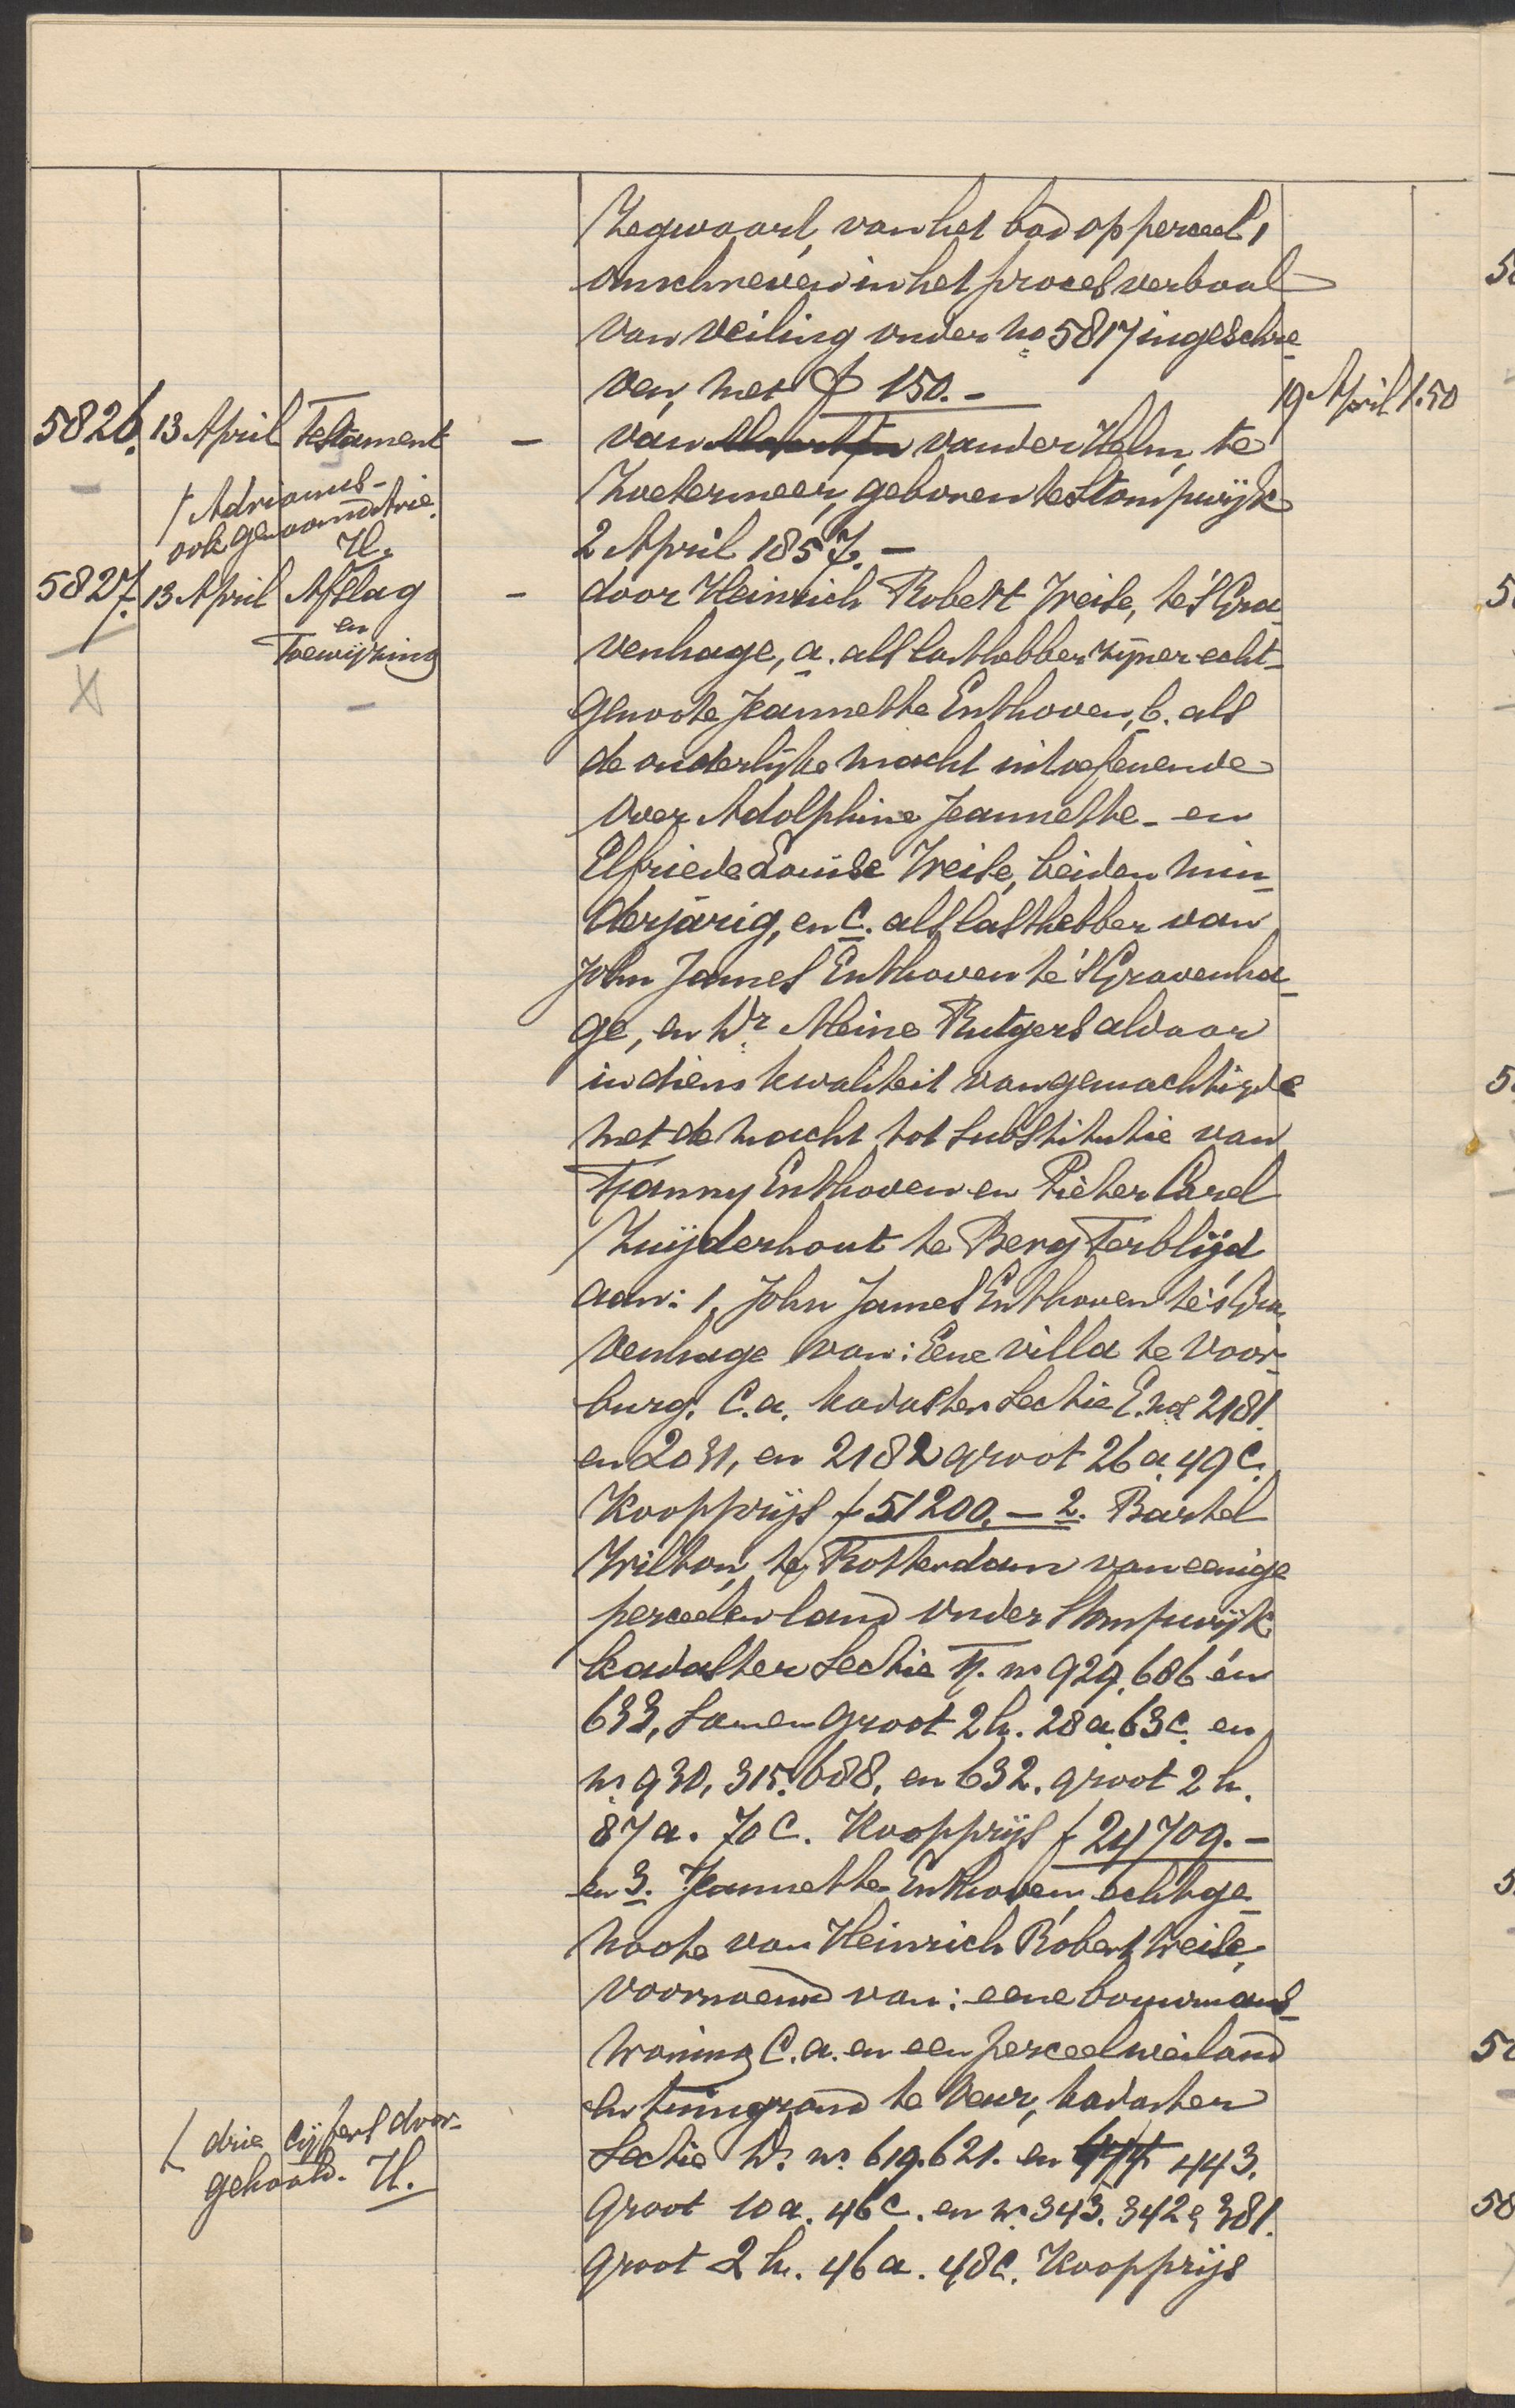 Zegwaard, van het bod op perceel 1
omschreven in het proces verbaal
van veiling onder no 5817 ingeschre-
ven, met f 150.-
19 April 1.50
5826. 13 April Testament - van Maarten van der Helm, te
Zoetermeer, geboren te Stompwijk
/ Adrianus-
ook genaamd Arie.
H.
2 April 1857. -
5827. 13 April Afslag
en
Toewijzing
- door Heinrich Robert Weise, te 's Gra-
venhage, a. als lasthebber zijner echt-
genoote Jeannette Enthoven, b. als
de ouderlijke macht uitoefenende
over Adolphine Jeannette- en
Elfriede Louise Weise, beiden min-
derjarig, en c. als lasthebber van
John James Enthoven te 's Gravenha-
ge, en Dr. Meine Rutgers aldaar
in diens kwaliteit van gemachtigde
met de macht tot substitutie van
Fanny Enthoven en Pieter Carel
Zuijderhout te Berg Terblijd
aan: 1. John James Enthoven te 's Gra
venhage van: Eene villa te Voor-
burg, c.a. kadaster Sectie E. nos 2181
en 2031, en 2182 groot 26 a. 49 c.
Koopprijs f 51200.- 2. Bartel
Wilton, te Rotterdam van eenige
perceelen land onder Stompwijk
kadaster Sectie F. no 929, 686 en
633, samen groot 2 h. 28 a. 63 c. en
no 930, 315. 688, en 632. groot 2 h.
87 a. 70 c. Koopprijs f 24709.-
en 3. Jeannette Enthoven, echtge-
noote van Heinrich Robert Weise,
voornoemd van: eene bouwmans-
woning c.a. en een perceel weiland
en tuingrond te Veur, kadaster
Sectie D. no. 619. 621. en 444 443.
/ drie cijfers door-
gehaald. H.
groot 10 a. 46 c. en no. 343. 342 & 381.
groot 2 h. 46 a. 48 c. Koopprijs